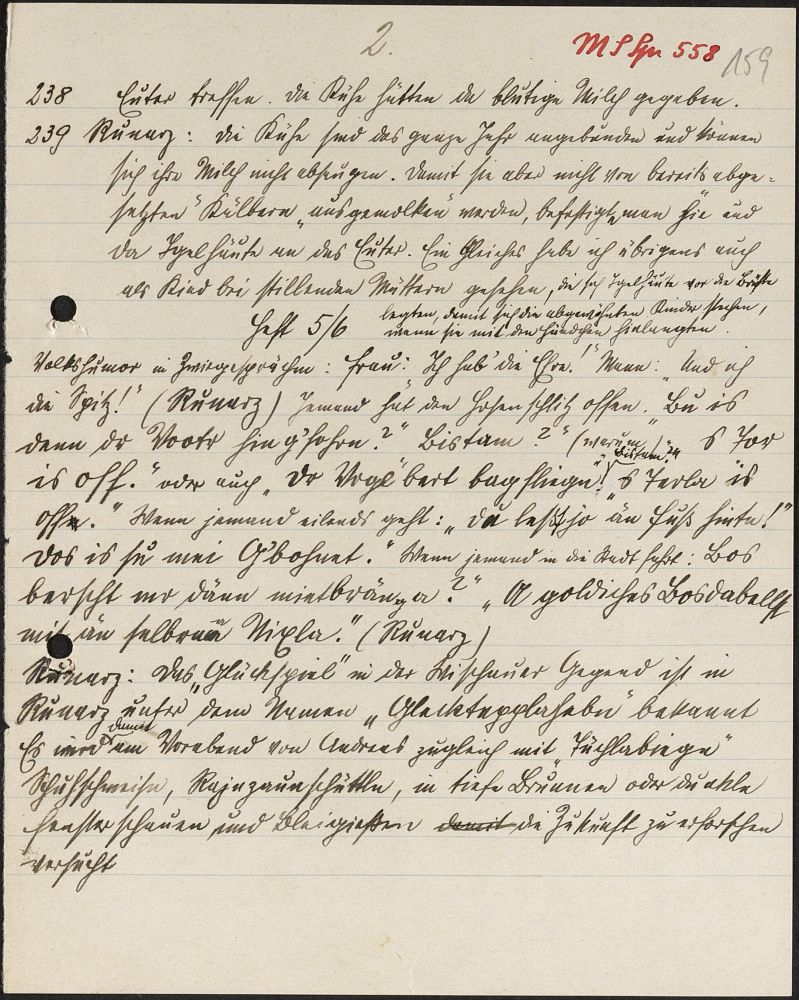 2.
MS Spr 558 159
238 Euter treffen. Die Kühe hätten da blutige Milch gegeben.
239 Runarz: Die Kühe sind das ganze Jahr angebunden und können
sich ihre Milch nicht absaugen. Damit sie aber nicht von bereits abge-
setzten Kälbern „ausgemolken" werden, befestigte man hie und
da Igelhäute an das Euter. Ein Gleiches habe ich übrigens auch
als Kind bei stillenden Müttern gesehen, die sich Igelhäute vor die Brüste
legten, damit sich die abgewöhnten Kinder stechen,
wenn sie mit den Händchen hinlangten.
Heft 5/6
Volkshumor in Zwiegesprächen: Frau: Ich hab' die Ehre!" Mann: „Und ich
die Spitz!" (Runarz) Jemand hat den Hosenschlitz offen. „Bu is
denn dr Vootr hing'fohrn?" Bistam?" (warum „Bistam?") S Tor
is off." oder auch „Dr Vogl bert bagfliegn! 's Terla is
offn." Wenn jemand eilends geht: „Du lesst jo än Fuß hinta!"
Dos is su mei G'bohnet." Wenn jemand in die Stadt fährt: Bos
berscht mr dänn mietbränga?" „A goldiches Bosdabellst
mit än selbrna Nixla." (Runarz)
Runarz: Das „Glückspiel" in der Wischauer Gegend ist in
Runarz unter dem Namen „Glecktepplahebn" bekannt
Es wird damit am Vorabend von Andreas zugleich mit „Tüchlabiegn"
Schuhschmeißn, Zaunschüttln, in tiefe Brunnen oder dunkle
Fenster schauen und Bleigießen die Zukunft zu erforschen
versucht